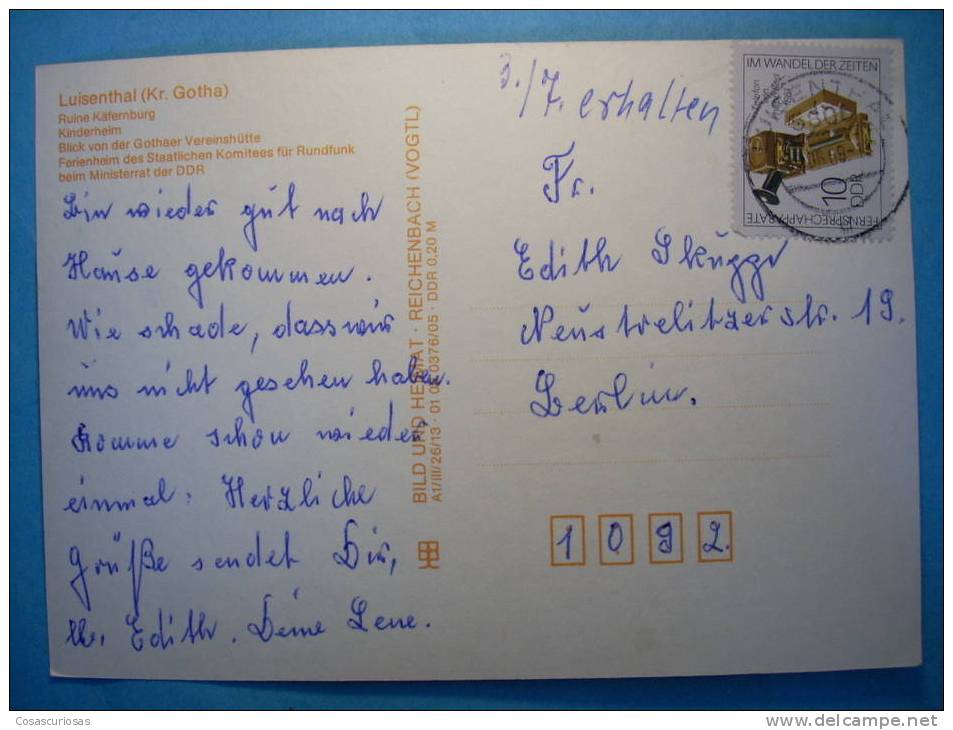 Luisenthal (Kr. Gotha)
Ruine Käfernburg
Kinderheim
Blick von der Gothaer Vereinshütte
Ferienheim des Staatlichen Komitees für Rundfunk
beim Ministerrat der DDR
Bin wieder gut nach
Hause gekommen.
Wie schade, dass wir
uns nicht gesehen haben.
Komme schon wieder
einmal. Herzliche
Grüße sendet Dir,
lb. Edith. Deine Lene.
BILD UND HEIMAT · REICHENBACH (VOGTL)
A1/III/26/13 · 01 0376/05 · DDR 0,20 M
3./7. erhalten
IM WANDEL DER ZEITEN
10
DDR
FERNSPRECHAPPARATE
Fr.
Edith
Neustrelitzerstr. 19.
Berlin.
1092.
Cosascuriosas
www.delcampe.net